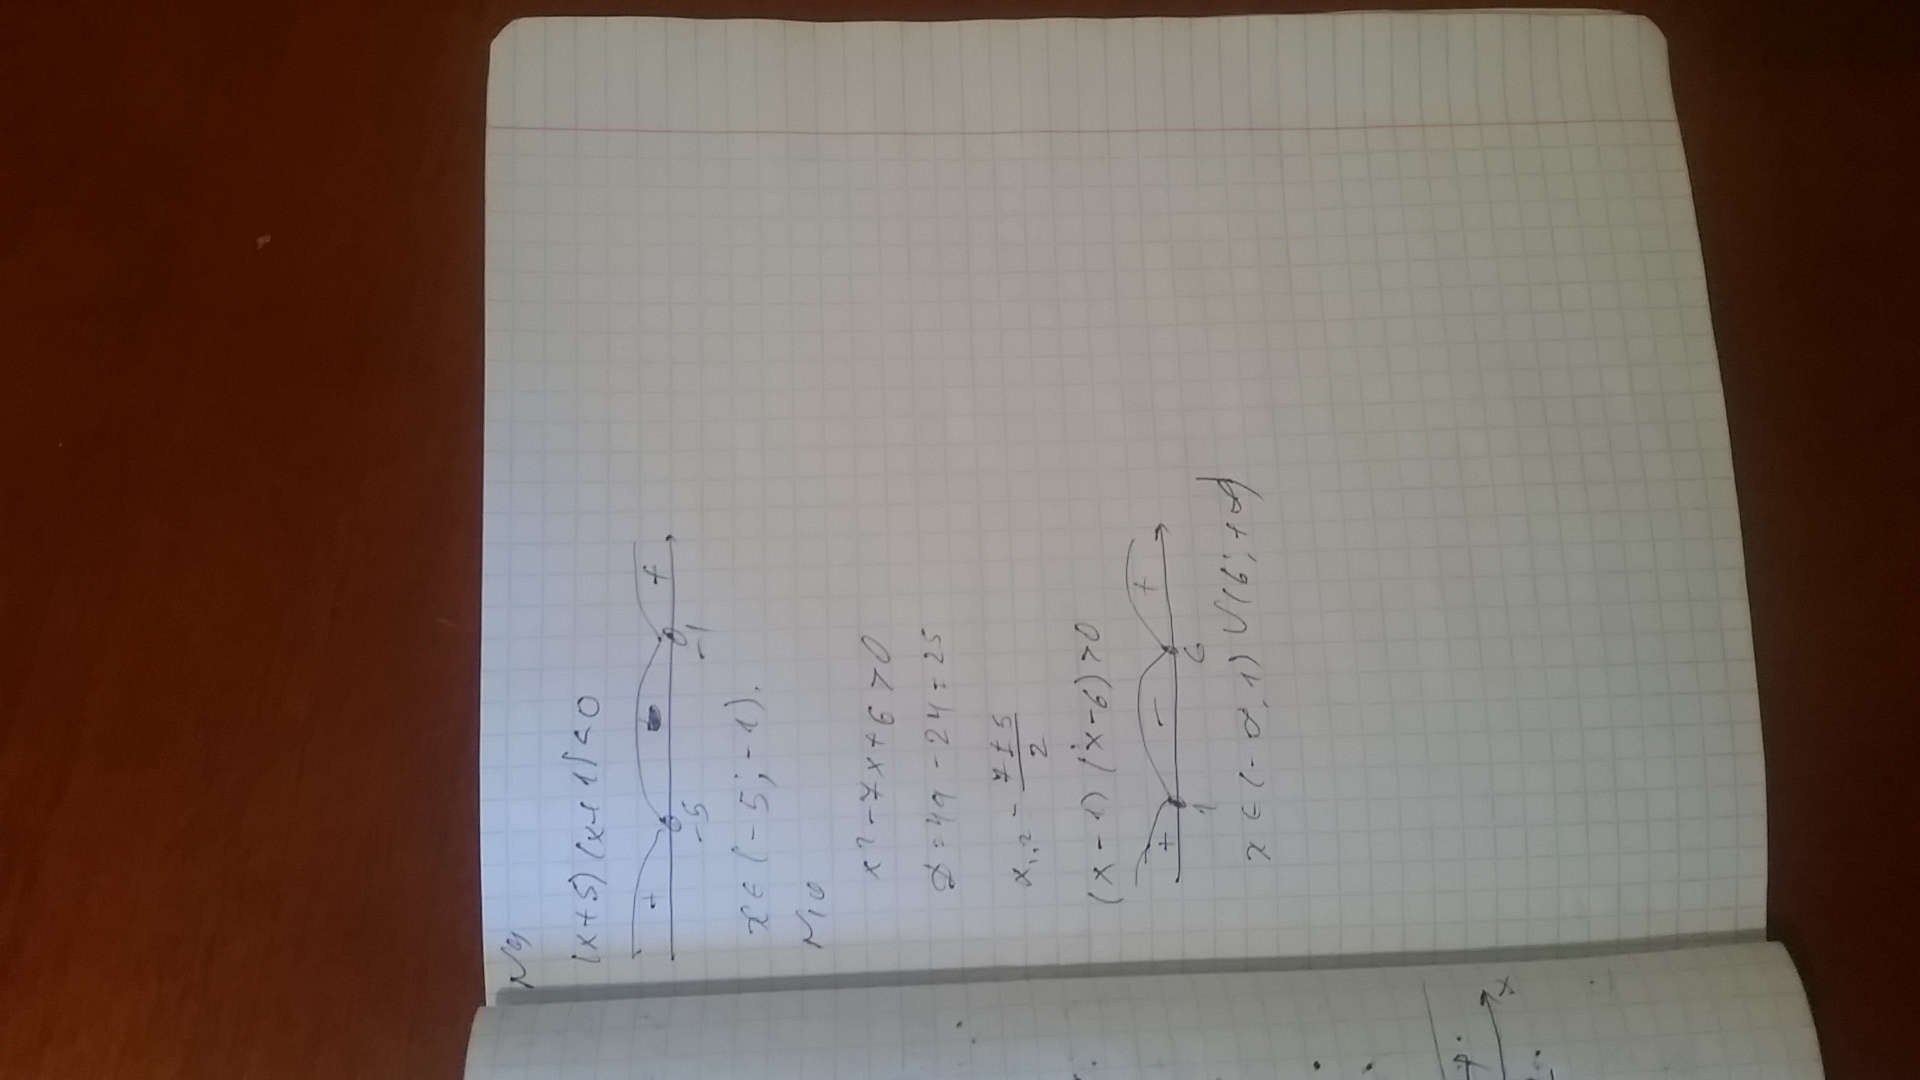 N9
(x+5)(x+1)<0
+ +
-5 -1
x∈(-5;-1).
N10
x²-7x+6>0
D=49-24=25
x1,2=7±5/2
(x-1)(x-6)>0
+ - +
1 6
x∈(-∞,1)∪(6;+∞)
x